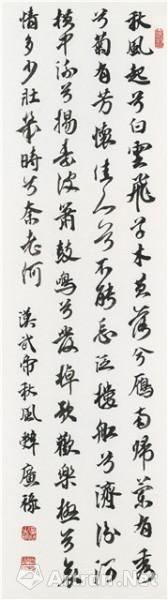 秋風起兮白雲飛草木黃落兮雁南歸蘭有秀
兮菊有芳懷佳人兮不能忘泛樓船兮濟汾河
橫中流兮揚素波簫鼓鳴兮發棹歌歡樂極兮哀
情多少壯幾時兮奈老何 漢武帝秋風辭
Artron.Net